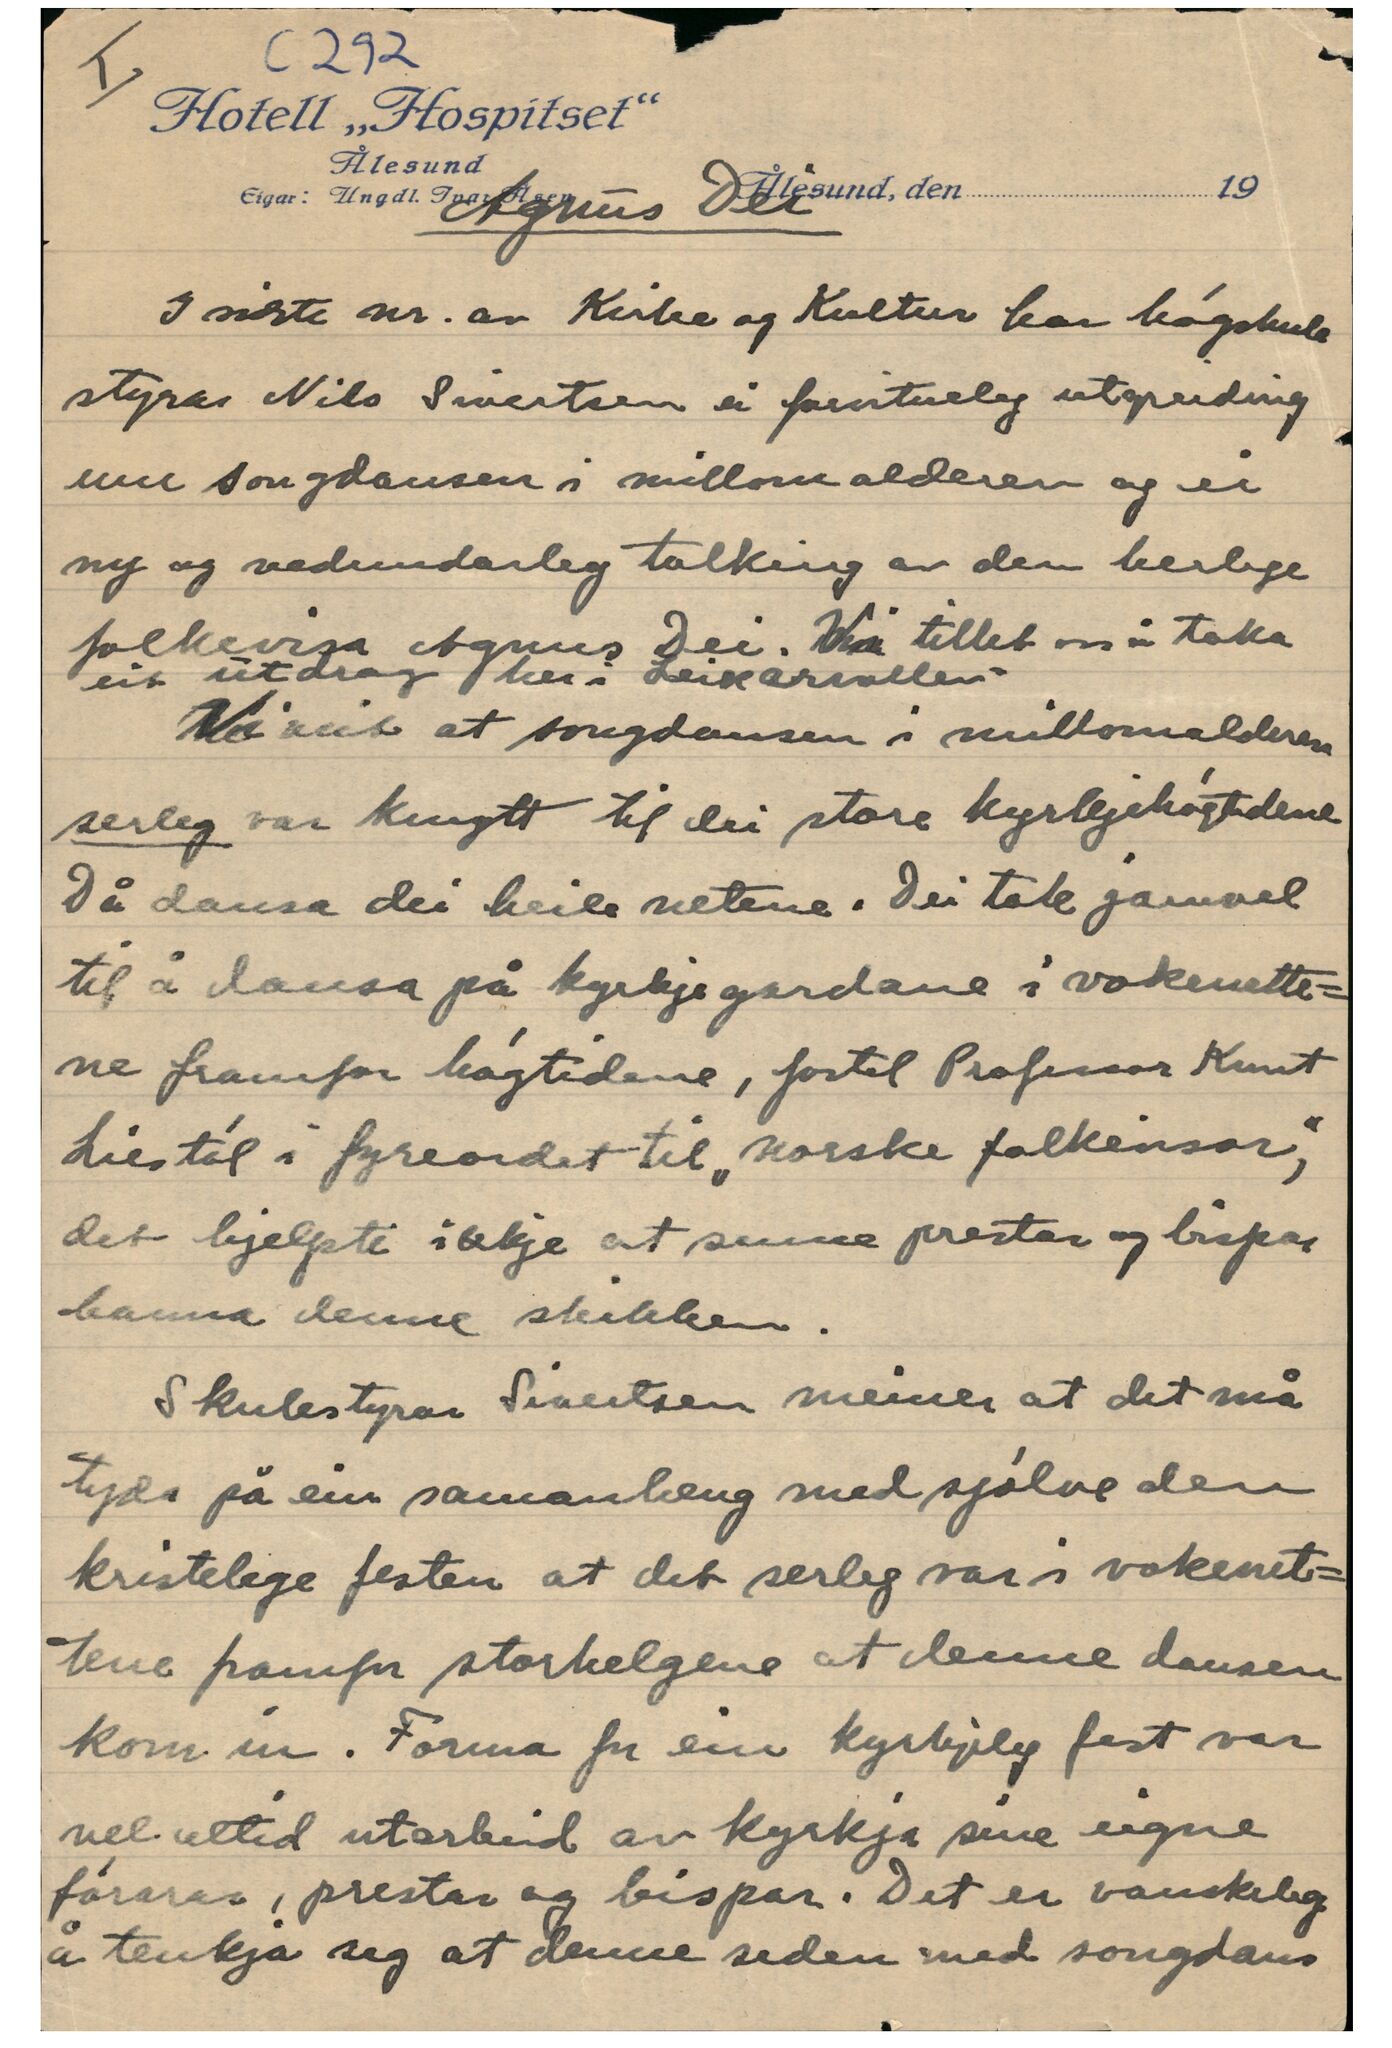 I
C 292
Hotell „Hospitset“
Ålesund
Eigar: Ungdl. Ivar Alsen
Ålesund, den 19
Agnus Dei
I siste nr. av Kirke og Kultur har högskule
styrar Nils Sivertsen ei forvitneleg utgreiding
um songdansen i millomalderen og ei
ny og vedunderleg tolking av den herlege
folkevisa Agnus Dei. Vi tillet oss å taka
eit utdrag her i Leikarvollen.
Vi veit at songdansen i millomalderen
serleg var knytt til dei store kyrkjehögtidene
Då dansa dei heile netene. Dei tok jamvel
til å dansa på kyrkjegardane i vokenette=
ne framfor högtidene, fortel Professor Knut
Liestöl i fyreordet til „norske folkevisor“,
det hjelpte ikkje at sume prestar og bispar
banna denne skikken.
Skulestyrar Sivertsen meiner at det må
tyda på ein samanheng med sjölve den
kristelege festen at det serleg var i vokenet=
tene framfor storhelgene at denne dansen
kom in. Forma for ein kyrkjeleg fest var
vel alltid utarbeid av kyrkja sine eigne
förarar, prestar og bispar. Det er vanskeleg
å tenkja seg at denne seden med songdans